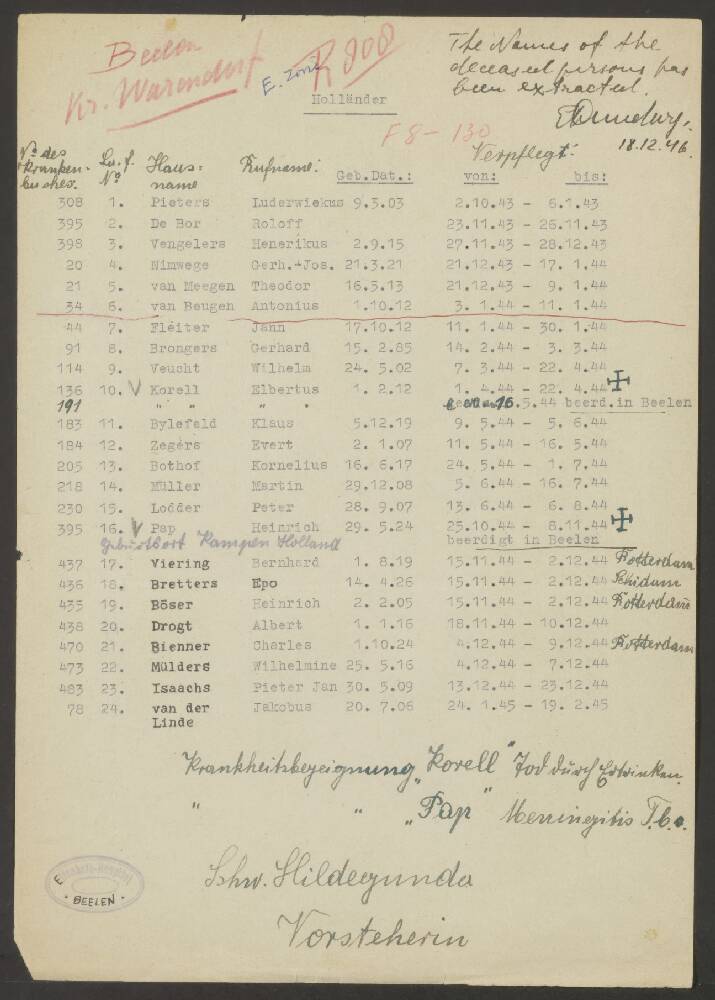 Beelen
Kr. Warendorf
E. Zone
R 808
The Names of the
deceased persons has
been extracted.
18.12.46.
Holländer
F 8 - 130
Nº des Kranken- buches. Lu.f. Nº Haus= name Rufname: Geb.Dat.: Verpflegt: von: bis:
308 1. Pieters Luderwiekus 9.3.03 2.10.43 - 6.1.43
395 2. De Bor Roloff 23.11.43 - 26.11.43
398 3. Vengelers Henerikus 2.9.15 27.11.43 - 28.12.43
20 4. Nimwege Gerh.-Jos. 21.3.21 21.12.43 - 17. 1.44
21 5. van Meegen Theodor 16.5.13 21.12.43 - 9. 1.44
34 6. van Beugen Antonius 1.10.12 3. 1.44 - 11. 1.44
44 7. Fleiter Jann 17.10.12 11. 1.44 - 30. 1.44
91 8. Brongers Gerhard 15. 2.85 14. 2.44 - 3. 3.44
114 9. Veucht Wilhelm 24. 5.02 7. 3.44 - 22. 4.44
136 10. V Korell Elbertus 1. 2.12 1. 4.44 - 22. 4.44
191 " " " " 16.5.44 beerd.in Beelen
183 11. Bylefeld Klaus 5.12.19 9. 5.44 - 5. 6.44
184 12. Zegers Evert 2. 1.07 11. 5.44 - 16. 5.44
205 13. Bothof Kornelius 16. 6.17 24. 5.44 - 1. 7.44
218 14. Müller Martin 29.12.08 5. 6.44 - 16. 7.44
230 15. Lodder Peter 28. 9.07 13. 6.44 - 6. 8.44
395 16. V Pap Heinrich 29. 5.24 25.10.44 - 8.11.44
Geburtsort Kampen Holland beerdigt in Beelen
437 17. Viering Bernhard 1. 8.19 15.11.44 - 2.12.44 Rotterdam
436 18. Bretters Epo 14. 4.26 15.11.44 - 2.12.44 Schidam
435 19. Böser Heinrich 2. 2.05 15.11.44 - 2.12.44 Rotterdam
438 20. Drogt Albert 1. 1.16 18.11.44 - 10.12.44
470 21. Bienner Charles 1.10.24 4.12.44 - 9.12.44 Rotterdam
473 22. Mülders Wilhelmine 25. 5.16 4.12.44 - 7.12.44
483 23. Isaachs Pieter Jan 30. 5.09 13.12.44 - 23.12.44
78 24. van der Linde Jakobus 20. 7.06 24. 1.45 - 19. 2.45
Krankheitsbezeignung „Korell" Tod durch Ertrinken.
" " „Pap" Menningitis T.b.c.
Schw. Hildegunda
Vorsteherin
BEELEN